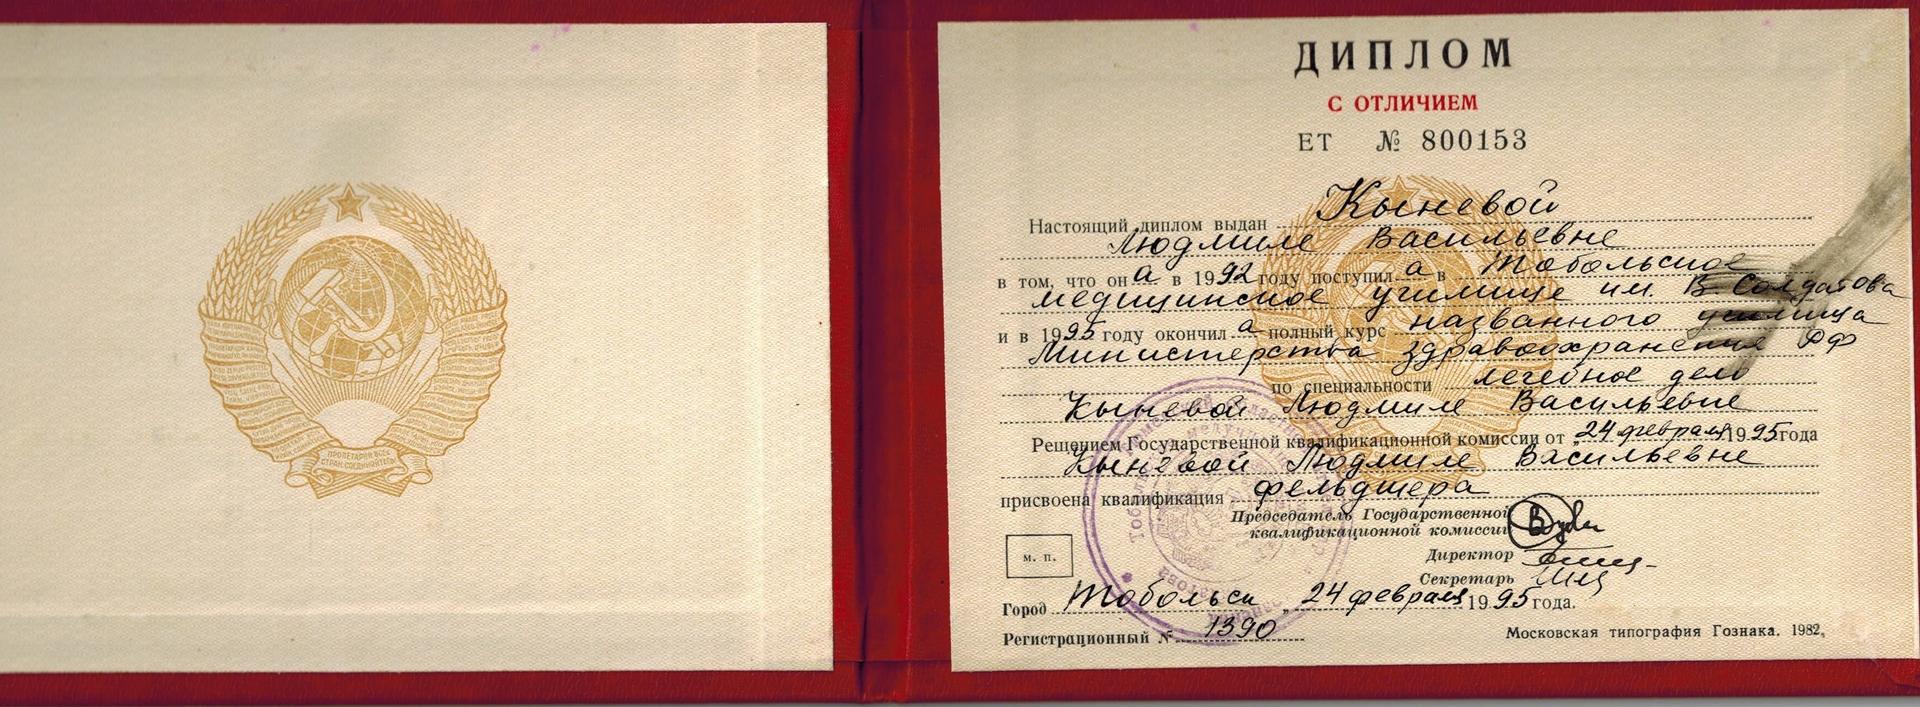 ПРОЛЕТАРИИ ВСЕХ
СТРАН, СОЕДИНЯЙТЕСЬ!
ДИПЛОМ
С ОТЛИЧИЕМ
ЕТ № 800153
Настоящий диплом выдан Кыневой
Людмиле Васильевне
в том, что она в 1992 году поступила в Тобольское
медицинское училище им. В Солдатова
и в 1995 году окончила полный курс названного училища
Министерства здравоохранения РФ
по специальности лечебное дело
Кыневой Людмиле Васильевне
Решением Государственной квалификационной комиссии от „24 февраля 1995 года
Кыневой Людмиле Васильевне
присвоена квалификация фельдшера
Председатель Государственной
квалификационной комиссии
Директор
Секретарь
м. п.
Город Тобольск „24 февраля 1995 года.
Регистрационный № 1390
Московская типография Гознака. 1982.